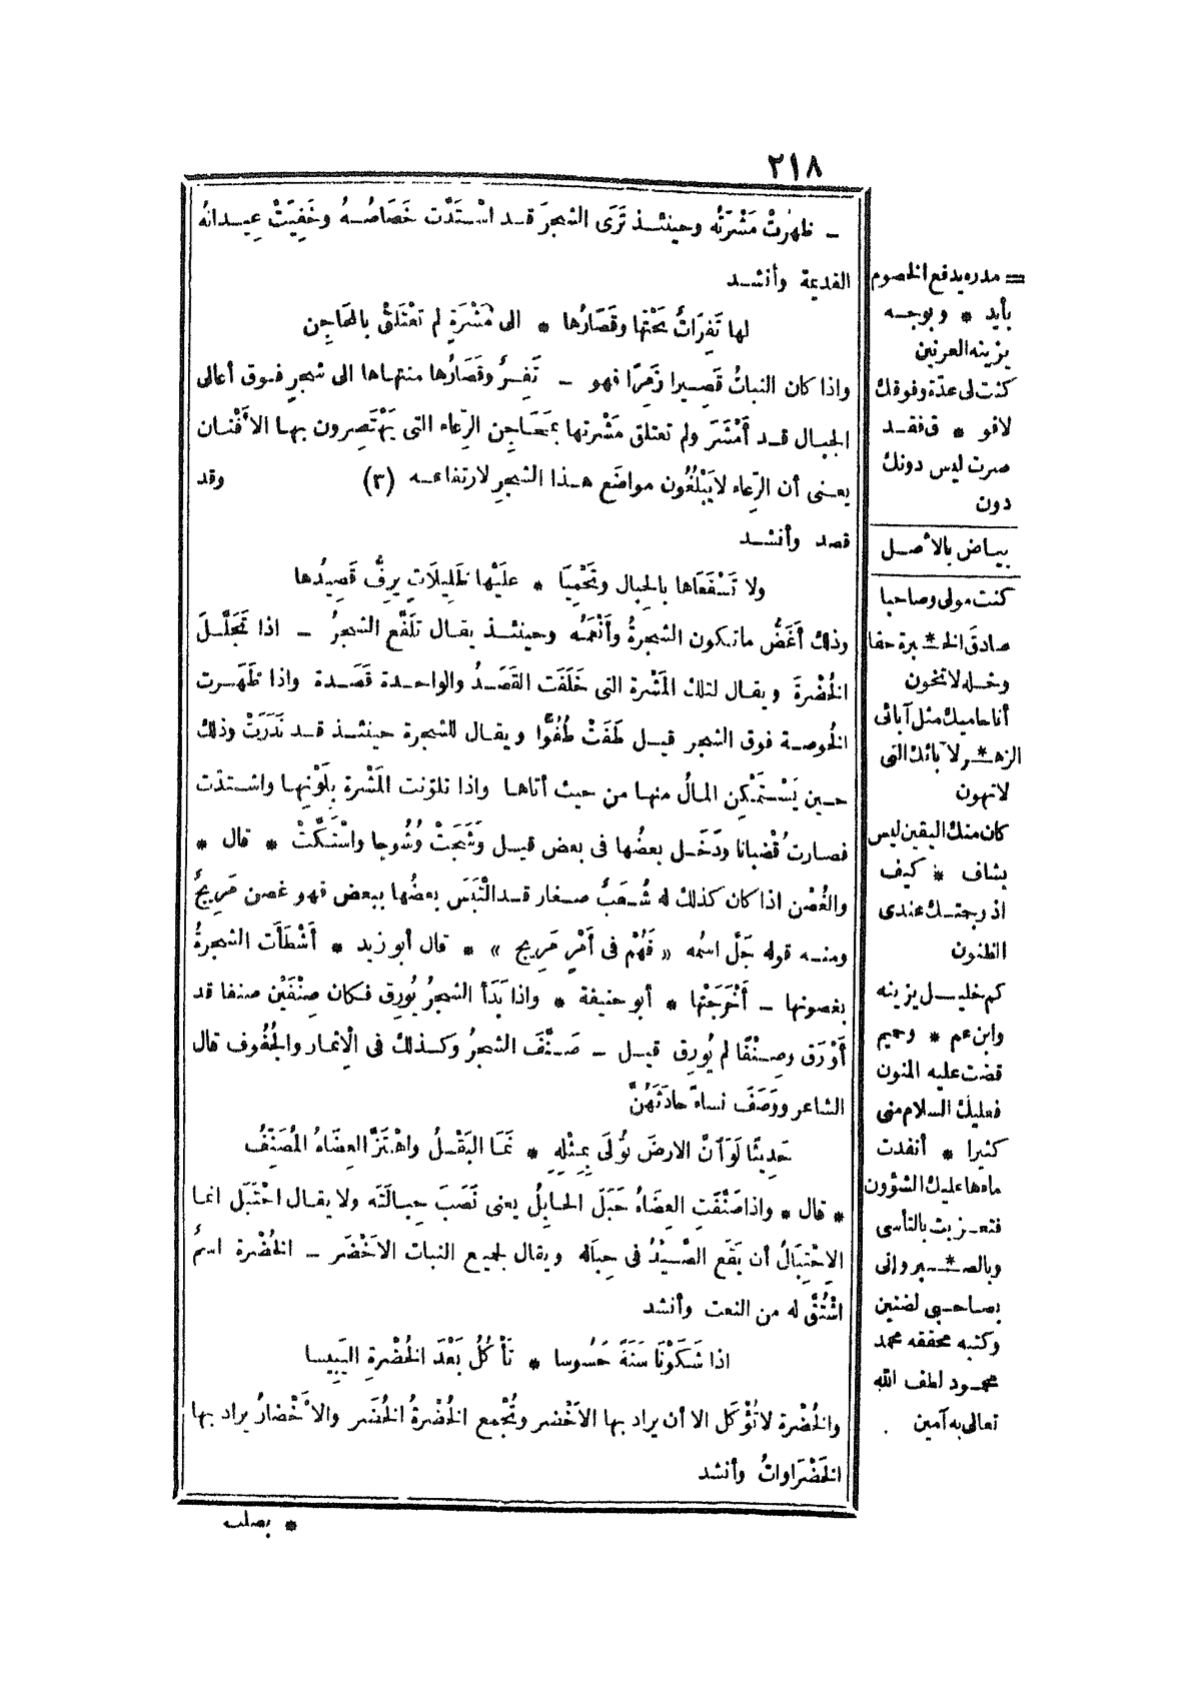 ٢١٨
ـ ظهرتْ مَشْرَتُه وحينئذ تَرَى الشجرَ قد اسْتَدَّت خَصَاصُهُ وخَفِيَتْ عِيدانهُ
القديمة وأنشد
لها تَفِرَاتٌ تَحْتَها وقَصَارُها * الى مَشْرَةٍ لم تَعْتَلِقْ بالمَحَاجِن
واذا كان النباتُ قَصِيرا زَمِرًا فهو ـ تَفِرٌ وقَصَارُها منتهاها الى شجرٍ فوق أعالى
الجبال قد أَمْشَرَ ولم تعتلق مَشْرتها بمَحَاجِن الرِّعاء التى يَهْتَصِرون بها الأَفْنان
يعنى أن الرِّعاء لا يَبْلُغُون مواضَع هذا الشجرِ لارتفاعه (٣) وقد
قصد وأنشد
ولا تَسْفَعَاها بالحِبال وتَحْمِيَا * علَيْها ظَلِيلَاتٍ يرِفُّ قَصِيدُها
وذلك أَغَضُّ ما تكون الشجرةُ وأَنْعَمُه وحينئذ يقال تلَفَّع الشجرُ ـ اذا تَجَلَّلَ
الخُضْرةَ ويقال لتلك المَشْرة التى خَلَفَت القَصَدُ والواحدة قَصَدة واذا ظَهَرت
الخُوصة فوق الشجر قيل طَفَتْ طُفُوًّا ويقال للشجرة حينئذ قد نَدَرَتْ وذلك
حين يَسْتَمْكِن المالُ منها من حيث أتاها واذا تلوّنت المَشْرة بِلَوْنِها واشتدّت
فصارت قُضْبانا ودَخَل بعضُها فى بعض قيل وَشَجَتْ وُشُوجا واشْتَبَكَتْ * قال *
والغُصْن اذا كان كذلك له شُعَبٌ صغار قد الْتَبَسَ بعضُها ببعض فهو غصن مَرِيجٌ
ومنه قوله جَلَّ اسمُه « فَهُمْ فى أَمْرٍ مَرِيج » * قال أبو زيد * أَشْطَأَت الشجرةُ
بغصونها ـ أَخْرَجَتْها * أبو حنيفة * واذا بَدَأ الشجرُ يُورِق فكان صِنْفَيْن صنفا قد
أَوْرَق وصِنْفًا لم يُورِق قيل ـ صَنَّفَ الشجرُ وكذلك فى الإثمار والجُفُوف قال
الشاعر ووَصَفَ نساءً حادَثَهُنَّ
حَدِيثًا لَوَ ٱنَّ الارضَ تُولَى بِمِثْلِهِ * نَمَا البَقْلُ واهْتَزَّ العِضَاهُ المُصَنِّفُ
* قال * واذا صَنَّفَتِ العِضَاهُ حَبَلَ الحابِلُ يعنى نَصَبَ حِبالَتَه ولا يقال احْتَبَل انما
الاِحْتِبَالُ أن يَقَع الصَّيْدُ فى حِبَاله ويقال لجميع النبات الاَخْضَر ـ الخُضْرة اسمٌ
اشْتُقَّ له من النعت وأنشد
اذا شَكَوْنَا سَنَةً حَسُوسا * نَأْكُلُ بَعْدَ الخُضْرةِ اليَبِيسا
والخُضْرة لا تُؤْكَل الا أن يراد بها الاَخْضر وتُجْمع الخُضْرةُ الخُضَر والاَخْضارُ يراد بها
الخَضْرَاواتُ وأنشد
* بصلب
= مدره يدفع الخصوم
بأيد * وبوجه
يزينه العرنين
كنت لى عدّة وفوقك
لا فو * ق فقد
صرت ليس دونك
دون
بياض بالأصل
كنت مولى وصاحبا
صادق الخـ * ـبرة حقا
وخله لا تخون
أنا حاميك مثل آبائى
الزهـ * ـر لآبائك التى
لا تهون
كان منك اليقين ليس
بشاف * كيف
اذ رجمتك عندى
الظنون
كم خليل يزينه
وابن عم * وحميم
قضت عليه المنون
فعليك السلام منى
كثيرا * أنفدت
ماءها عليك الشؤون
فتعزيت بالتأسى
وبالصـ * ـبر وانى
بصاحبى لضنين
وكتبه محققه محمد
محمود لطف الله
تعالى به آمين